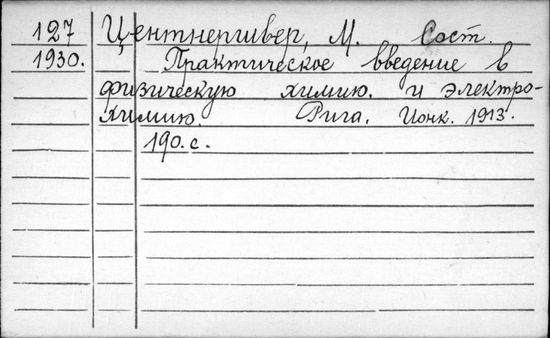 127 Центнершвер, М. Сост.
1930. Практическое введение в
физическую химию. и электро-
химию. Рига. Ионк. 1913.
190.с.